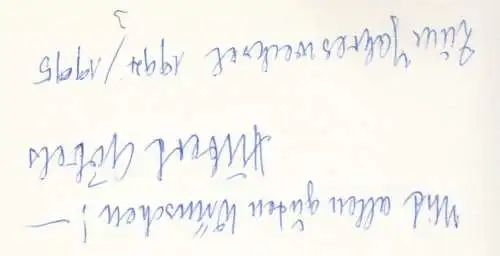 Mit allen guten Wünschen! —
Hubert Göbels
Zum Jahreswechsel 1994/1995
3